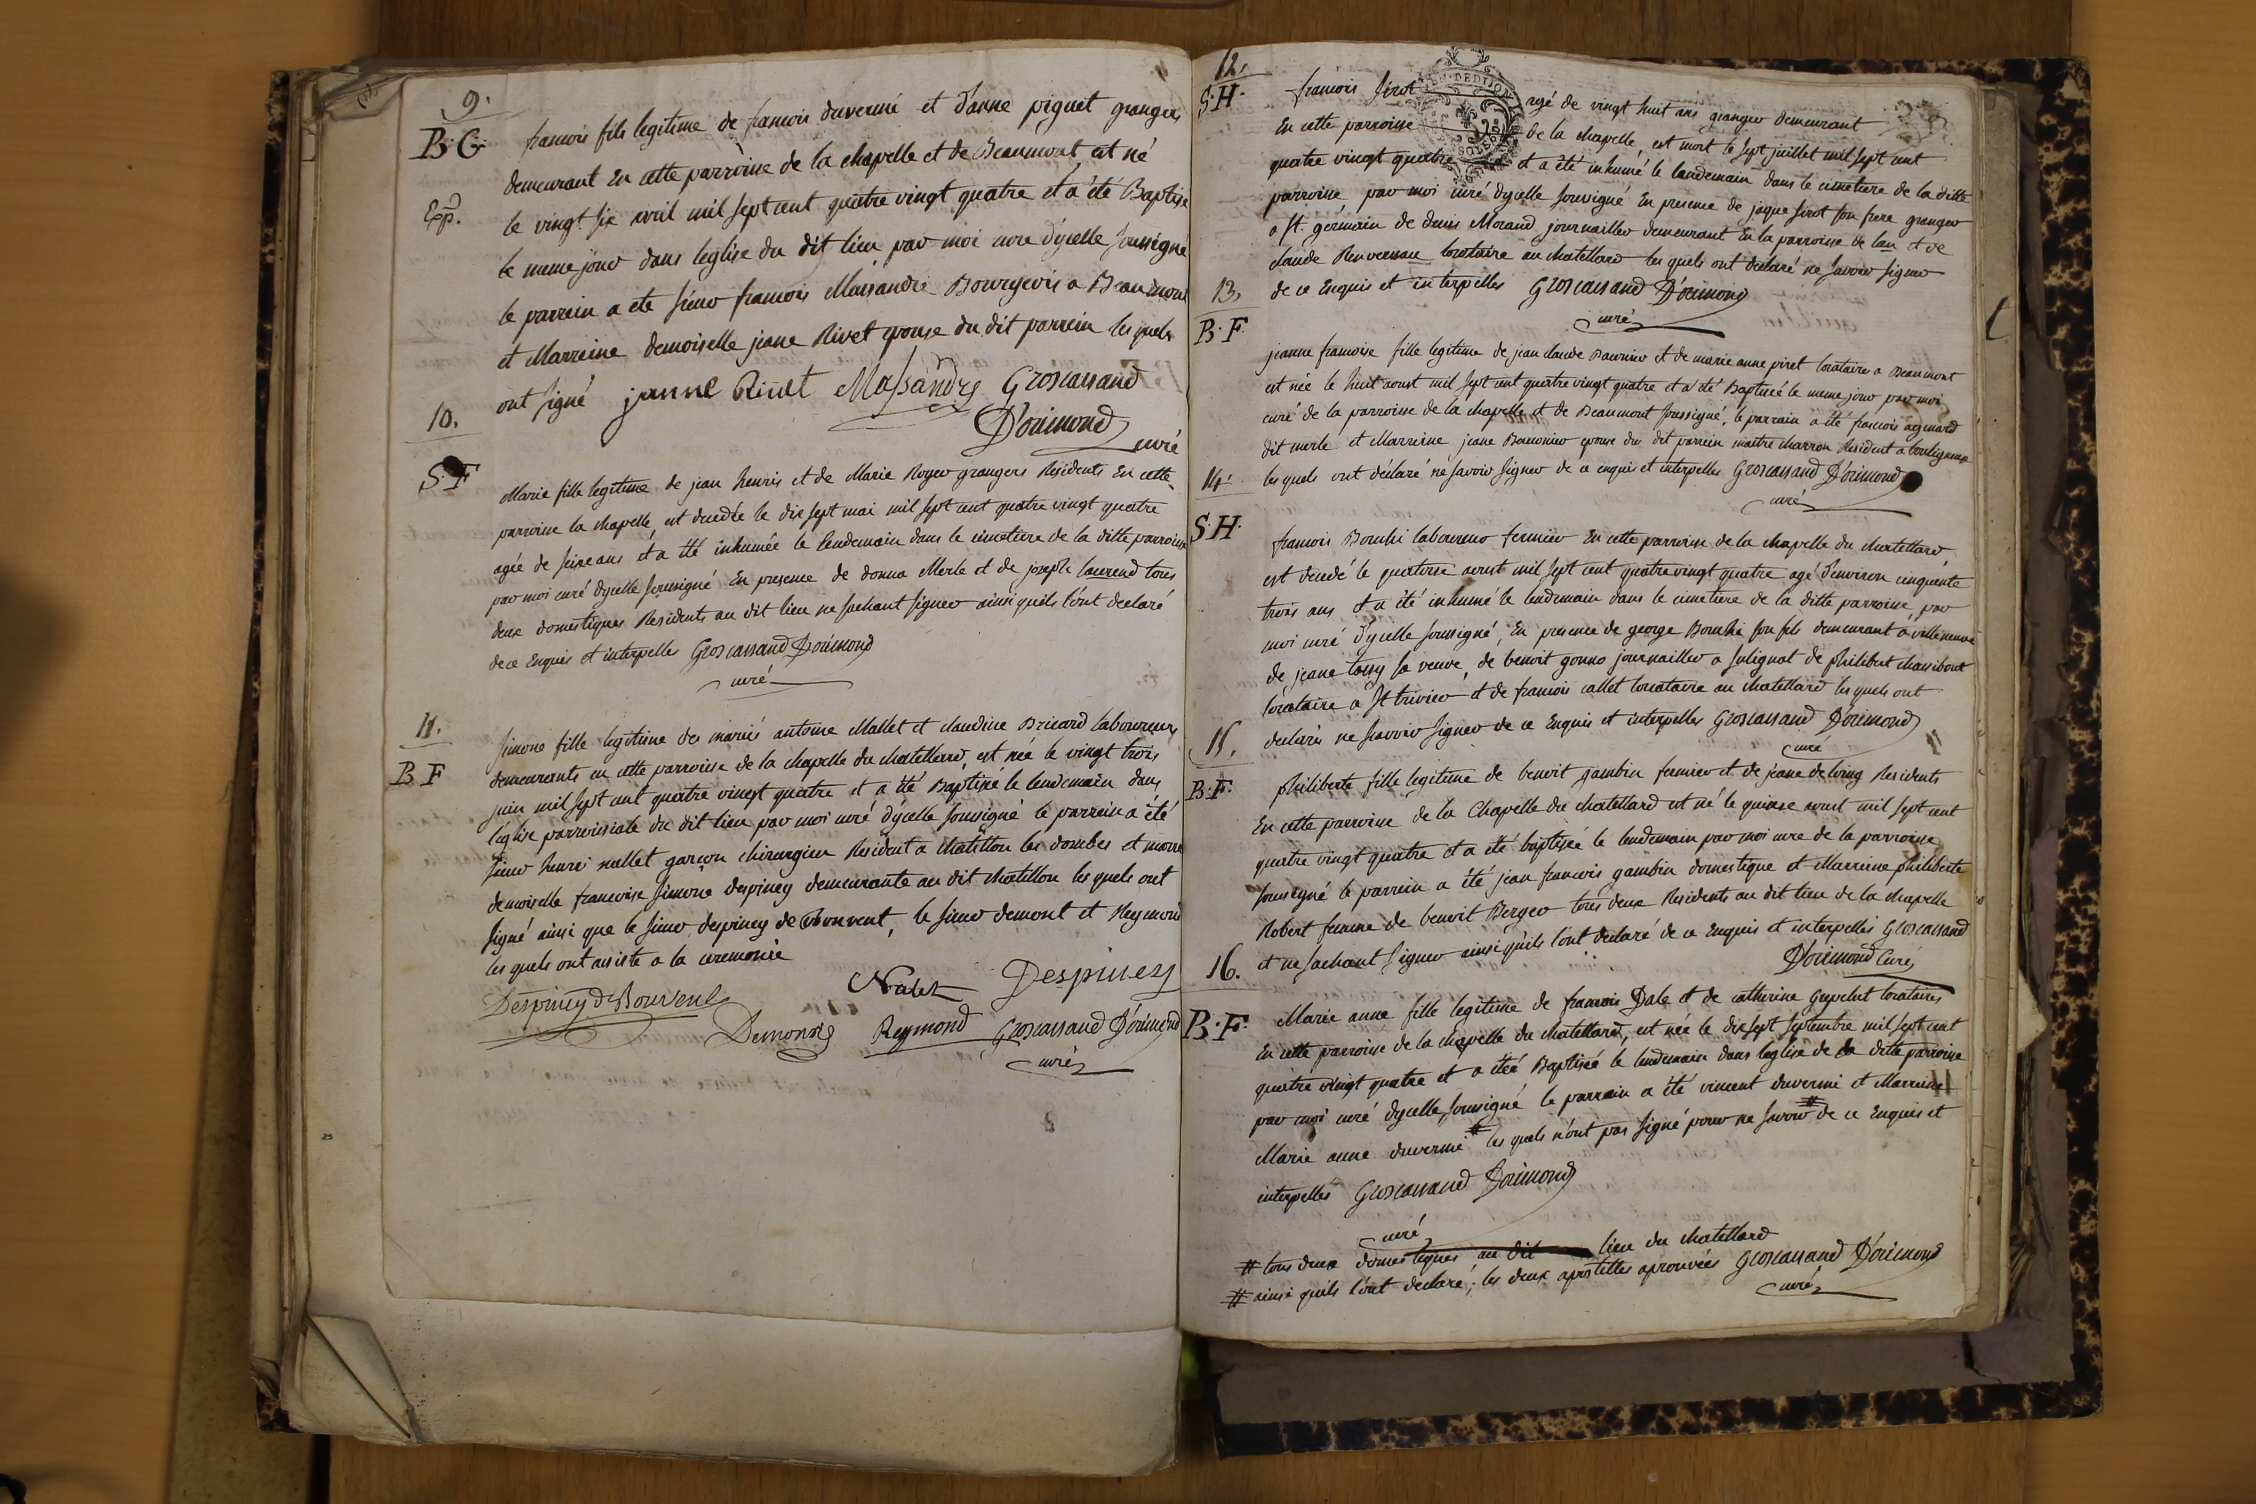 9.
B. G.
Exp.
francois fils legitime de francois duverné et d'anne piguet grangers
demeurant En cette parroisse de la chapelle et de Beaumont est né
le vingt six avril mil sept cent quatre vingt quatre et a été Baptisé
le meme jour dans leglise du dit lieu par moi curé dycelle soussigné
le parrain a ete sieur francois Massandre Bourgeois a Beaumont
et Marreine demoiselle jeane Rivet epouse du dit parrein lesquels
ont signé janne Rivet Massandre Groscassand
D'orimond
curé
10.
S. F
Marie fille legitime de jean henris et de Marie Royer grangers Residents En cette
parroisse la chapelle, est decedée le dix sept mai mil sept cent quatre vingt quatre
agée de seize ans et a été inhumée le lendemain dans le cimetiere de la ditte parroisse
par moi curé dycelle soussigné En presence de donna Merle et de joseph laurend tous
deux domestiques Residents au dit lieu ne sachant signer ainsi quils l'ont declaré
de ce Enquis et interpelles Groscassand D'orimond
curé
11.
B F
simone fille legitime des mariés antoine Mallet et claudine Bricard laboureurs
demeurants en cette parroisse de la chapelle du chatellard, est née le vingt trois
juin mil sept cent quatre vingt quatre et a été Baptisée le lendemain dans
l'eglise parroissiale du dit lieu par moi curé d'ycelle soussigné le parrein a été
sieur henri nallet garçon chirurgien Résident a chatillon les dombes et marre
demoiselle francoise simone despiney demeurante au dit chatillon les quels ont
signé ainsi que le sieur despiney de Bouvent, le sieur demont et Reymond
les quels ont assisté a la ceremonie
Nalet Despiney
Despiney de Bouvent
Demont Reymond Groscassand D'orimond
curé
12.
S. H.
francois sirot agé de vingt huit ans granger demeurant
En cette parroisse de la chapelle, est mort le sept juillet mil sept cent
quatre vingt quatre et a été inhumé le lendemain dans le cimetiere de la ditte
parroisse, par moi curé dycelle soussigné En presence de jaque sirot son frere granger
a St. germain de denis Morand journaillier demeurant En la parroisse de lan et de
claude Renverseau locataire au chatellard les quels ont declaré ne savoir signer
de ce Enquis et interpelles Groscassand D'orimond
curé
13.
B. F.
jeanne francoise fille legitime de jean claude Baunier et de marie anne piret locataires a Beaumont
est née le huit aoust mil sept cent quatre vingt quatre et a été Baptisée le meme jour par moi
curé de la parroisse de la chapelle et de Beaumont soussigné, le parrain a été francois aymard
dit merle et Marreine jeane Baunier epouse du dit parrein maitre charron Résident a bouligneux
les quels ont déclaré ne savoir signer de ce enquis et interpelles Groscassand D'orimond
curé
14.
S. H.
francois Bouchi laboureur fermier En cette parroisse de la chapelle du chatellard
est decedé le quatorze aoust mil sept cent quatre vingt quatre agé d'environ cinquante
trois ans et a été inhumé le lendemain dans le cimetiere de la ditte parroisse, par
moi curé d'ycelle soussigné, En presence de george Bouchi son fils demeurant a villeneuve
de jeane tassy sa veuve, de benoit gonno journaillier a sulignat de philibert chassibout
locataire a St trivier et de francois callet locataire au chatellard les quels ont
declarés ne scavoir signer de ce Enquis et interpelles Groscassand D'orimond
curé
15.
B. F.
philiberte fille legitime de benoit gambin fermier et de jeane deloing Residents
En cette parroisse de la Chapelle du chatellard est né le quinze aoust mil sept cent
quatre vingt quatre et a été baptisée le lendemain par moi curé de la parroisse
soussigné le parrein a été jean francois gambin domestique et Marreine philiberte
Robert femme de benoit Berger tous deux Residents au dit lieu de la chapelle
et ne sachant signer ainsi quils l'ont declaré de ce Enquis et interpellés Groscassand
D'orimond Curé
16.
B. F.
Marie anne fille legitime de francois Dale et de catherine Guepelut locataires
En cette parroisse de la chapelle du chatellard, est née le dix sept septembre mil sept cent
quatre vingt quatre et a été Baptisée le lendemain dans leglise de la ditte parroisse
par moi curé dycelle soussigné le parrain a été vincent duverné et Marreine
Marie anne duverné # les quels n'ont pas signé pour ne savoir # de ce Enquis et
interpellés Groscassand D'orimond
curé
# tous deux domestiques au dit lieu du chatellard
# ainsi quils l'ont declaré; les deux apostilles aprouvées Groscassand D'orimond
curé